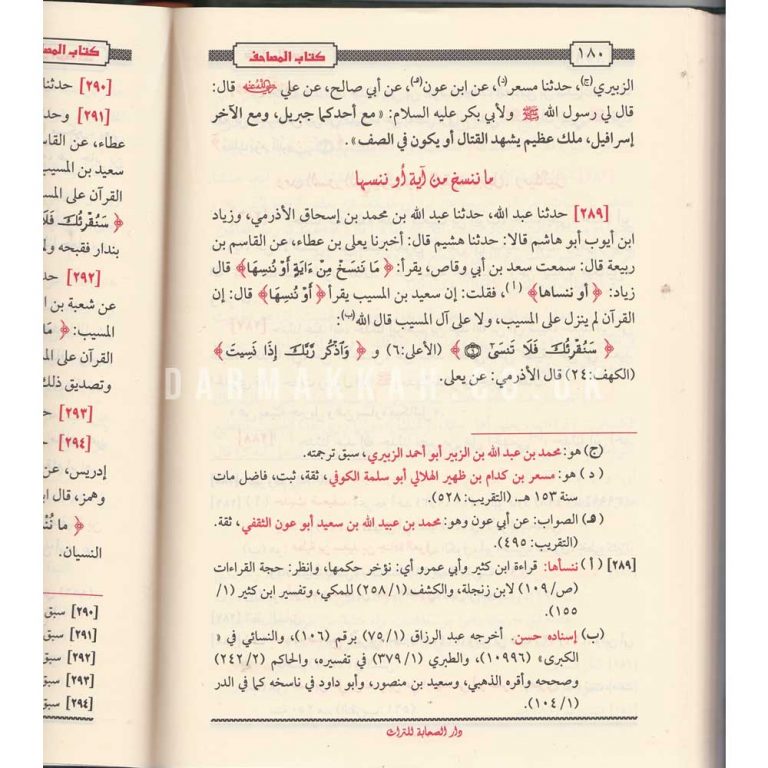 ١٨٠
كتاب المصاحف
الزبيري(ج)، حدثنا مسعر(د)، عن ابن عون(هـ)، عن أبي صالح، عن علي رضي الله عنه قال:
قال لي رسول الله ﷺ ولأبي بكر عليه السلام: «مع أحدكما جبريل، ومع الآخر
إسرافيل، ملك عظيم يشهد القتال أو يكون في الصف».
ما ننسخ من آية أو ننسها
[٢٨٩] حدثنا عبد الله، حدثنا عبد الله بن محمد بن إسحاق الأذرمي، وزياد
ابن أيوب أبو هاشم قالا: حدثنا هشيم قال: أخبرنا يعلى بن عطاء، عن القاسم بن
ربيعة قال: سمعت سعد بن أبي وقاص، يقرأ: ﴿مَا نَنسَخْ مِنْ ءَايَةٍ أَوْ نُنسِهَا﴾ قال
زياد: ﴿أو ننساها﴾(أ)، فقلت: إن سعيد بن المسيب يقرأ ﴿أَوْ نُنسِهَا﴾ قال: إن
القرآن لم ينزل على المسيب، ولا على آل المسيب قال الله(ب):
﴿سَنُقْرِئُكَ فَلَا تَنسَىٰٓ ٦﴾ (الأعلى:٦) و ﴿وَاذْكُر رَّبَّكَ إِذَا نَسِيتَ﴾
(الكهف:٢٤) قال الأذرمي: عن يعلى.
DARMAKKAH.CO.UK
(ج) هو: محمد بن عبد الله بن الزبير أبو أحمد الزبيري، سبق ترجمته.
(د) هو: مسعر بن كدام بن ظهير الهلالي أبو سلمة الكوفي، ثقة، ثبت، فاضل مات
سنة ١٥٣ هـ. (التقريب: ٥٢٨).
(هـ) الصواب: عن أبي عون وهو: محمد بن عبيد الله بن سعيد أبو عون الثقفي، ثقة.
(التقريب: ٤٩٥).
[٢٨٩] (أ) ننسأها: قراءة ابن كثير وأبي عمرو أي: نؤخر حكمها، وانظر: حجة القراءات
(ص/١٠٩) لابن زنجلة، والكشف (٢٥٨/١) للمكي، وتفسير ابن كثير (١/
١٥٥).
(ب) إسناده حسن. أخرجه عبد الرزاق (٧٥/١) برقم (١٠٦)، والنسائي في «
الكبرى» (١٠٩٩٦)، والطبري (٣٧٩/١) في تفسيره، والحاكم (٢٤٢/٢)
وصححه وأقره الذهبي، وسعيد بن منصور، وأبو داود في ناسخه كما في الدر
(١٠٤/١).
دار الصحابة للتراث
كتاب
[٢٩٠] حدثنا
[٢٩١] وحد
عطاء، عن القا
سعيد بن المسيب
القرآن على المس
﴿سَنُقْرِئُكَ فَلَا
بندار فقبحه ول
[٢٩٢] حد
عن شعبة بن ا
المسيب: ﴿مَا
القرآن على الم
وتصديق ذلك
[٢٩٣]
[٢٩٤]
إدريس، عن
وهمز، قال اب
﴿مَا نُن
النسيان.
[٢٩٠] سبق
[٢٩١] سبق
[٢٩٢] سبق
[٢٩٣] سبق
[٢٩٤] سبق